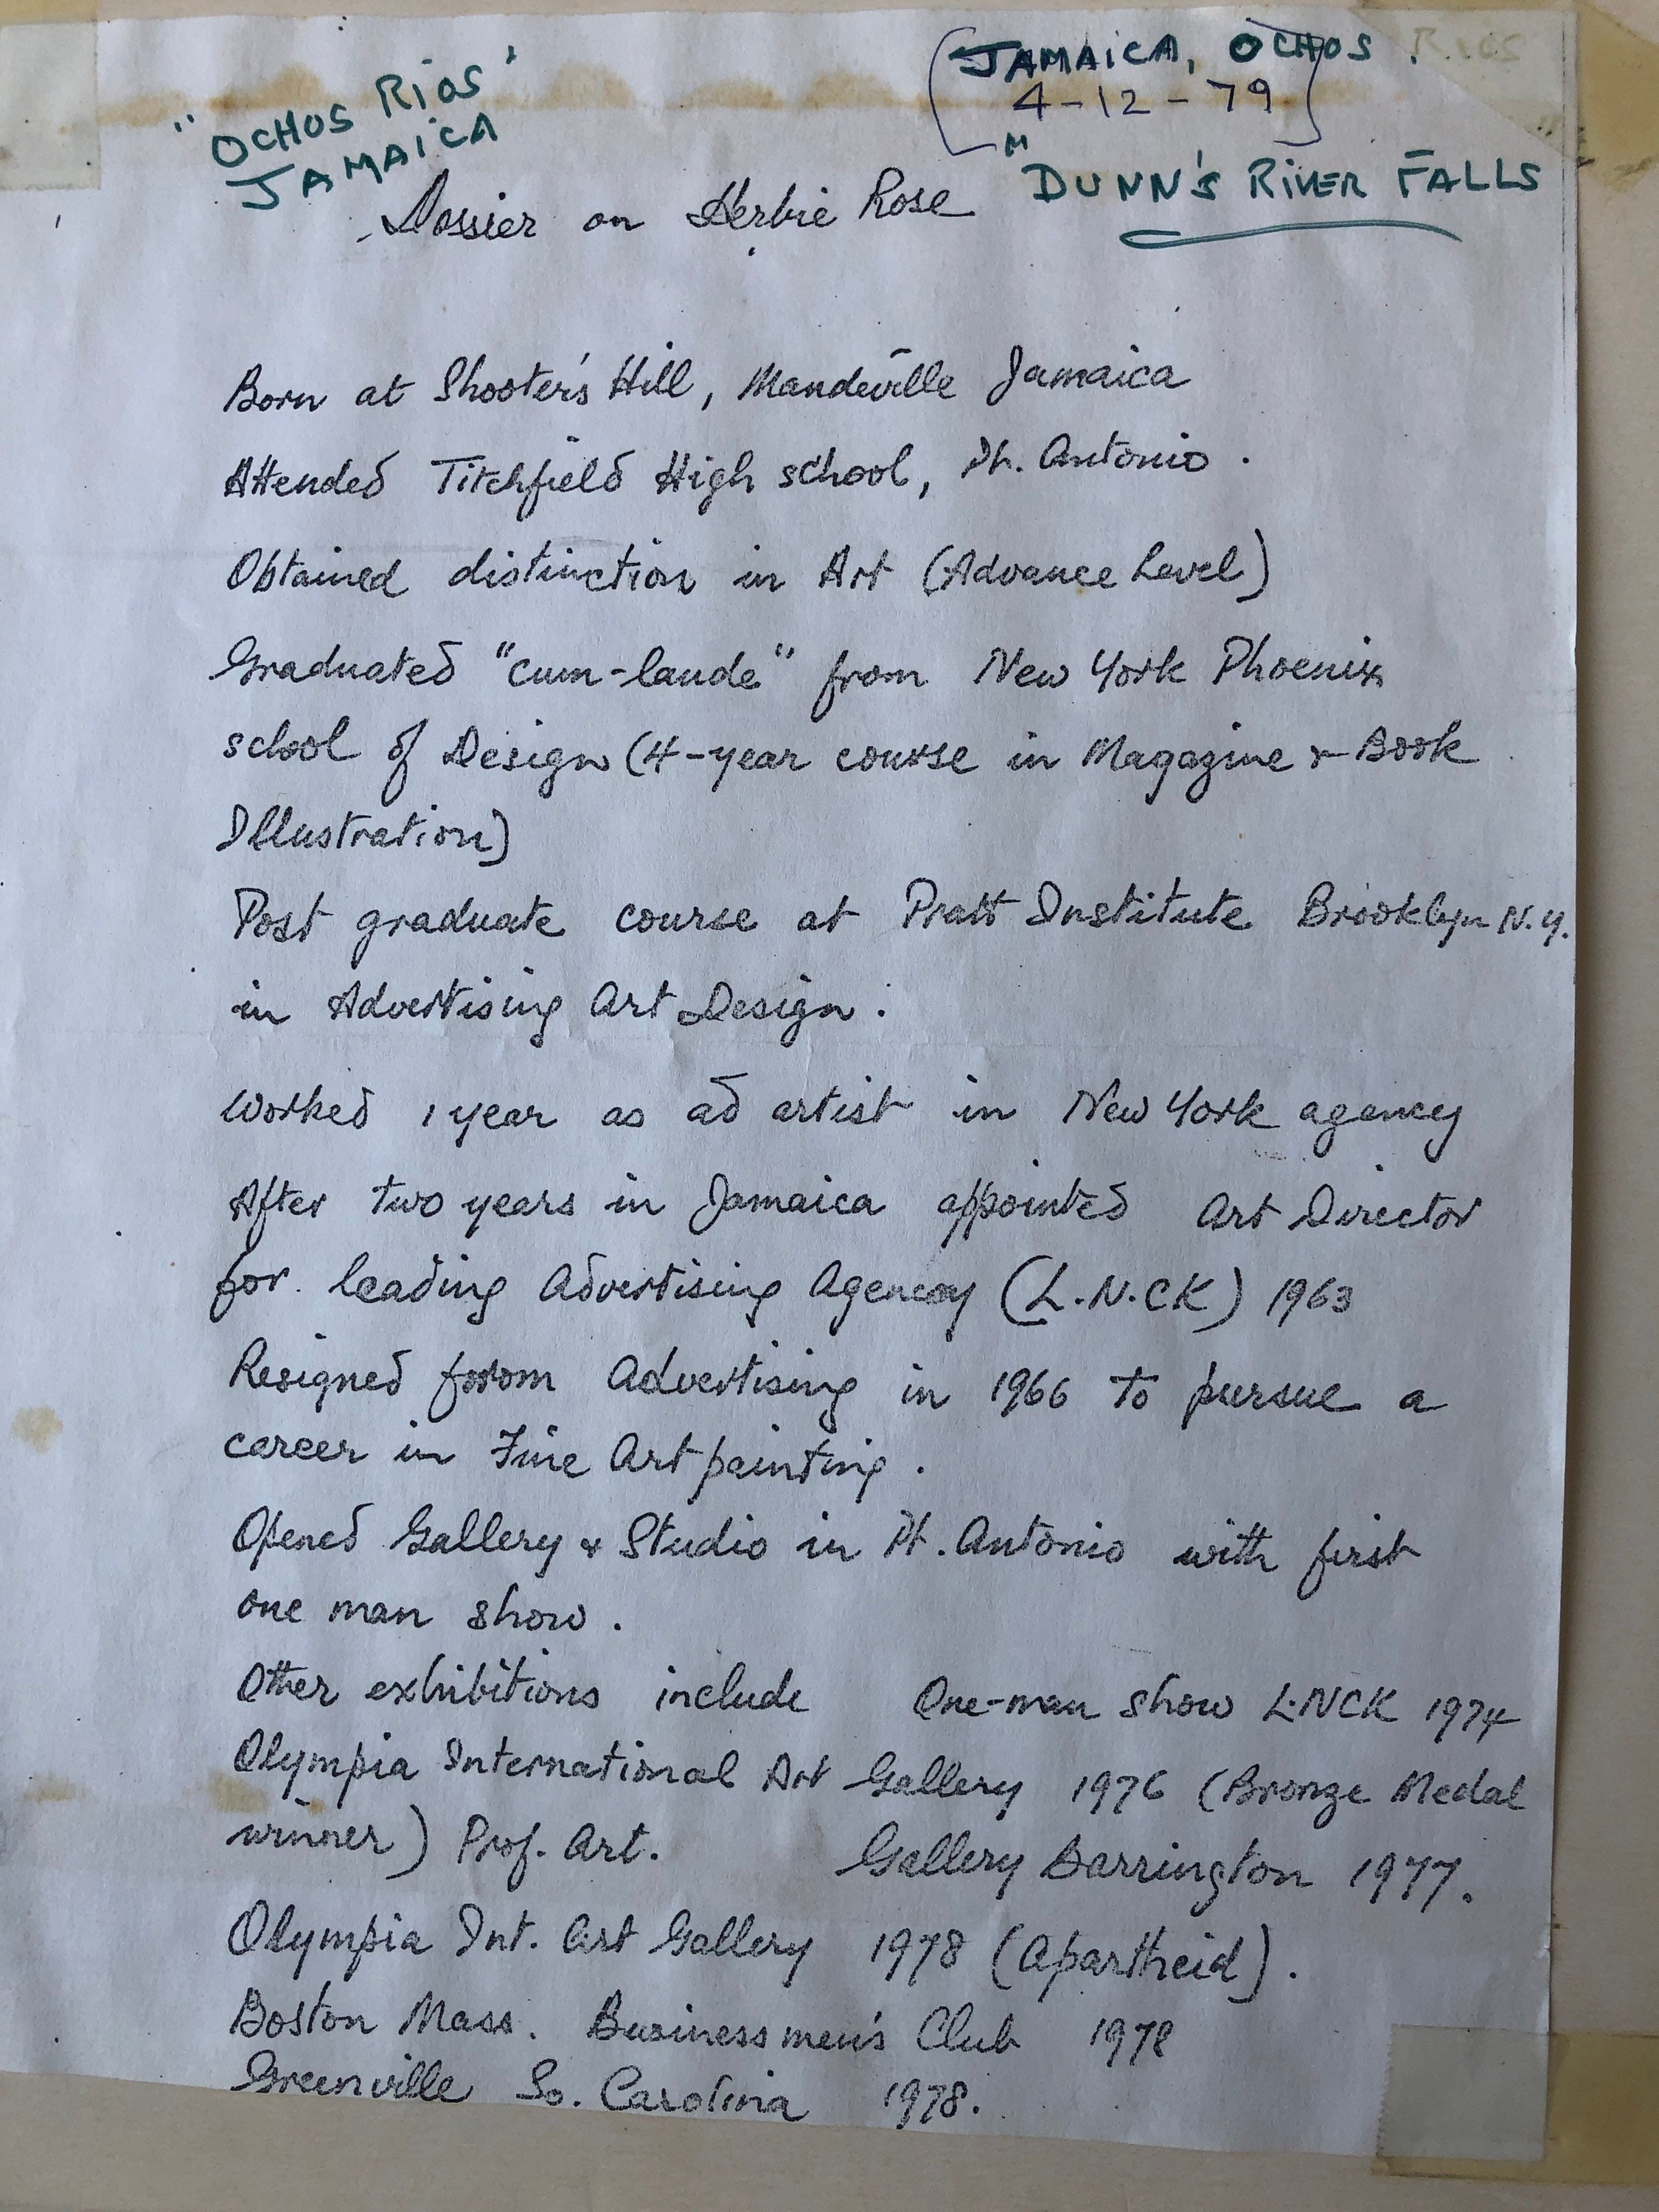 "OCHOS RIOS"
JAMAICA
JAMAICA, OCHOS RIOS
4-12-79
"DUNN'S RIVER FALLS"
Dossier on Herbie Rose
Born at Shooter's Hill, Mandeville Jamaica
Attended Titchfield High school, Pt. Antonio.
Obtained distinction in Art (Advance Level)
Graduated "cum-laude" from New York Phoenix
school of Design (4-year course in Magazine & Book
Illustration)
Post graduate course at Pratt Institute Brooklyn N.Y.
in Advertising Art Design.
Worked 1 year as ad artist in New York agency
After two years in Jamaica appointed Art Director
for leading Advertising Agency (L.N.CK) 1963
Resigned from Advertising in 1966 to pursue a
career in Fine Art painting.
Opened Gallery & Studio in Pt. Antonio with first
one man show.
Other exhibitions include One-man show L.NCK 1974
Olympia International Art Gallery 1976 (Bronze Medal
winner) Prof. Art. Gallery Barrington 1977.
Olympia Int. Art Gallery 1978 (Apartheid).
Boston Mass. Businessmen's Club 1978
Greenville So. Carolina 1978.